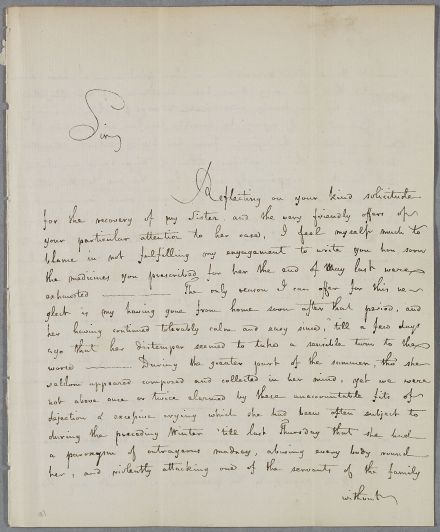 Sir,
Reflecting on your kind solicitude
for the recovery of my Sister and the very friendly offers of
your particular attention to her case, I feel myself much to
blame in not fulfilling my engagement to write you how soon
the medicines you prescribed for her the end of May last were
exhausted — The only reason I can offer for this ne-
glect is my having gone from home soon after that period, and
her having continued tolerably calm and easy since, till a few days
ago that her distemper seemed to take a sensible turn to the
worse — During the greater part of the summer, tho she
seldom appeared composed and collected in her mind, yet we were
not above once or twice alarmed by those unaccountable fits of
dejection & excessive crying which she had been often subject to
during the preceding Winter 'till last Thursday that she had
a paroxysm of outrageous madness, abusing every body round
her, and violently attacking one of the servants of the family
without